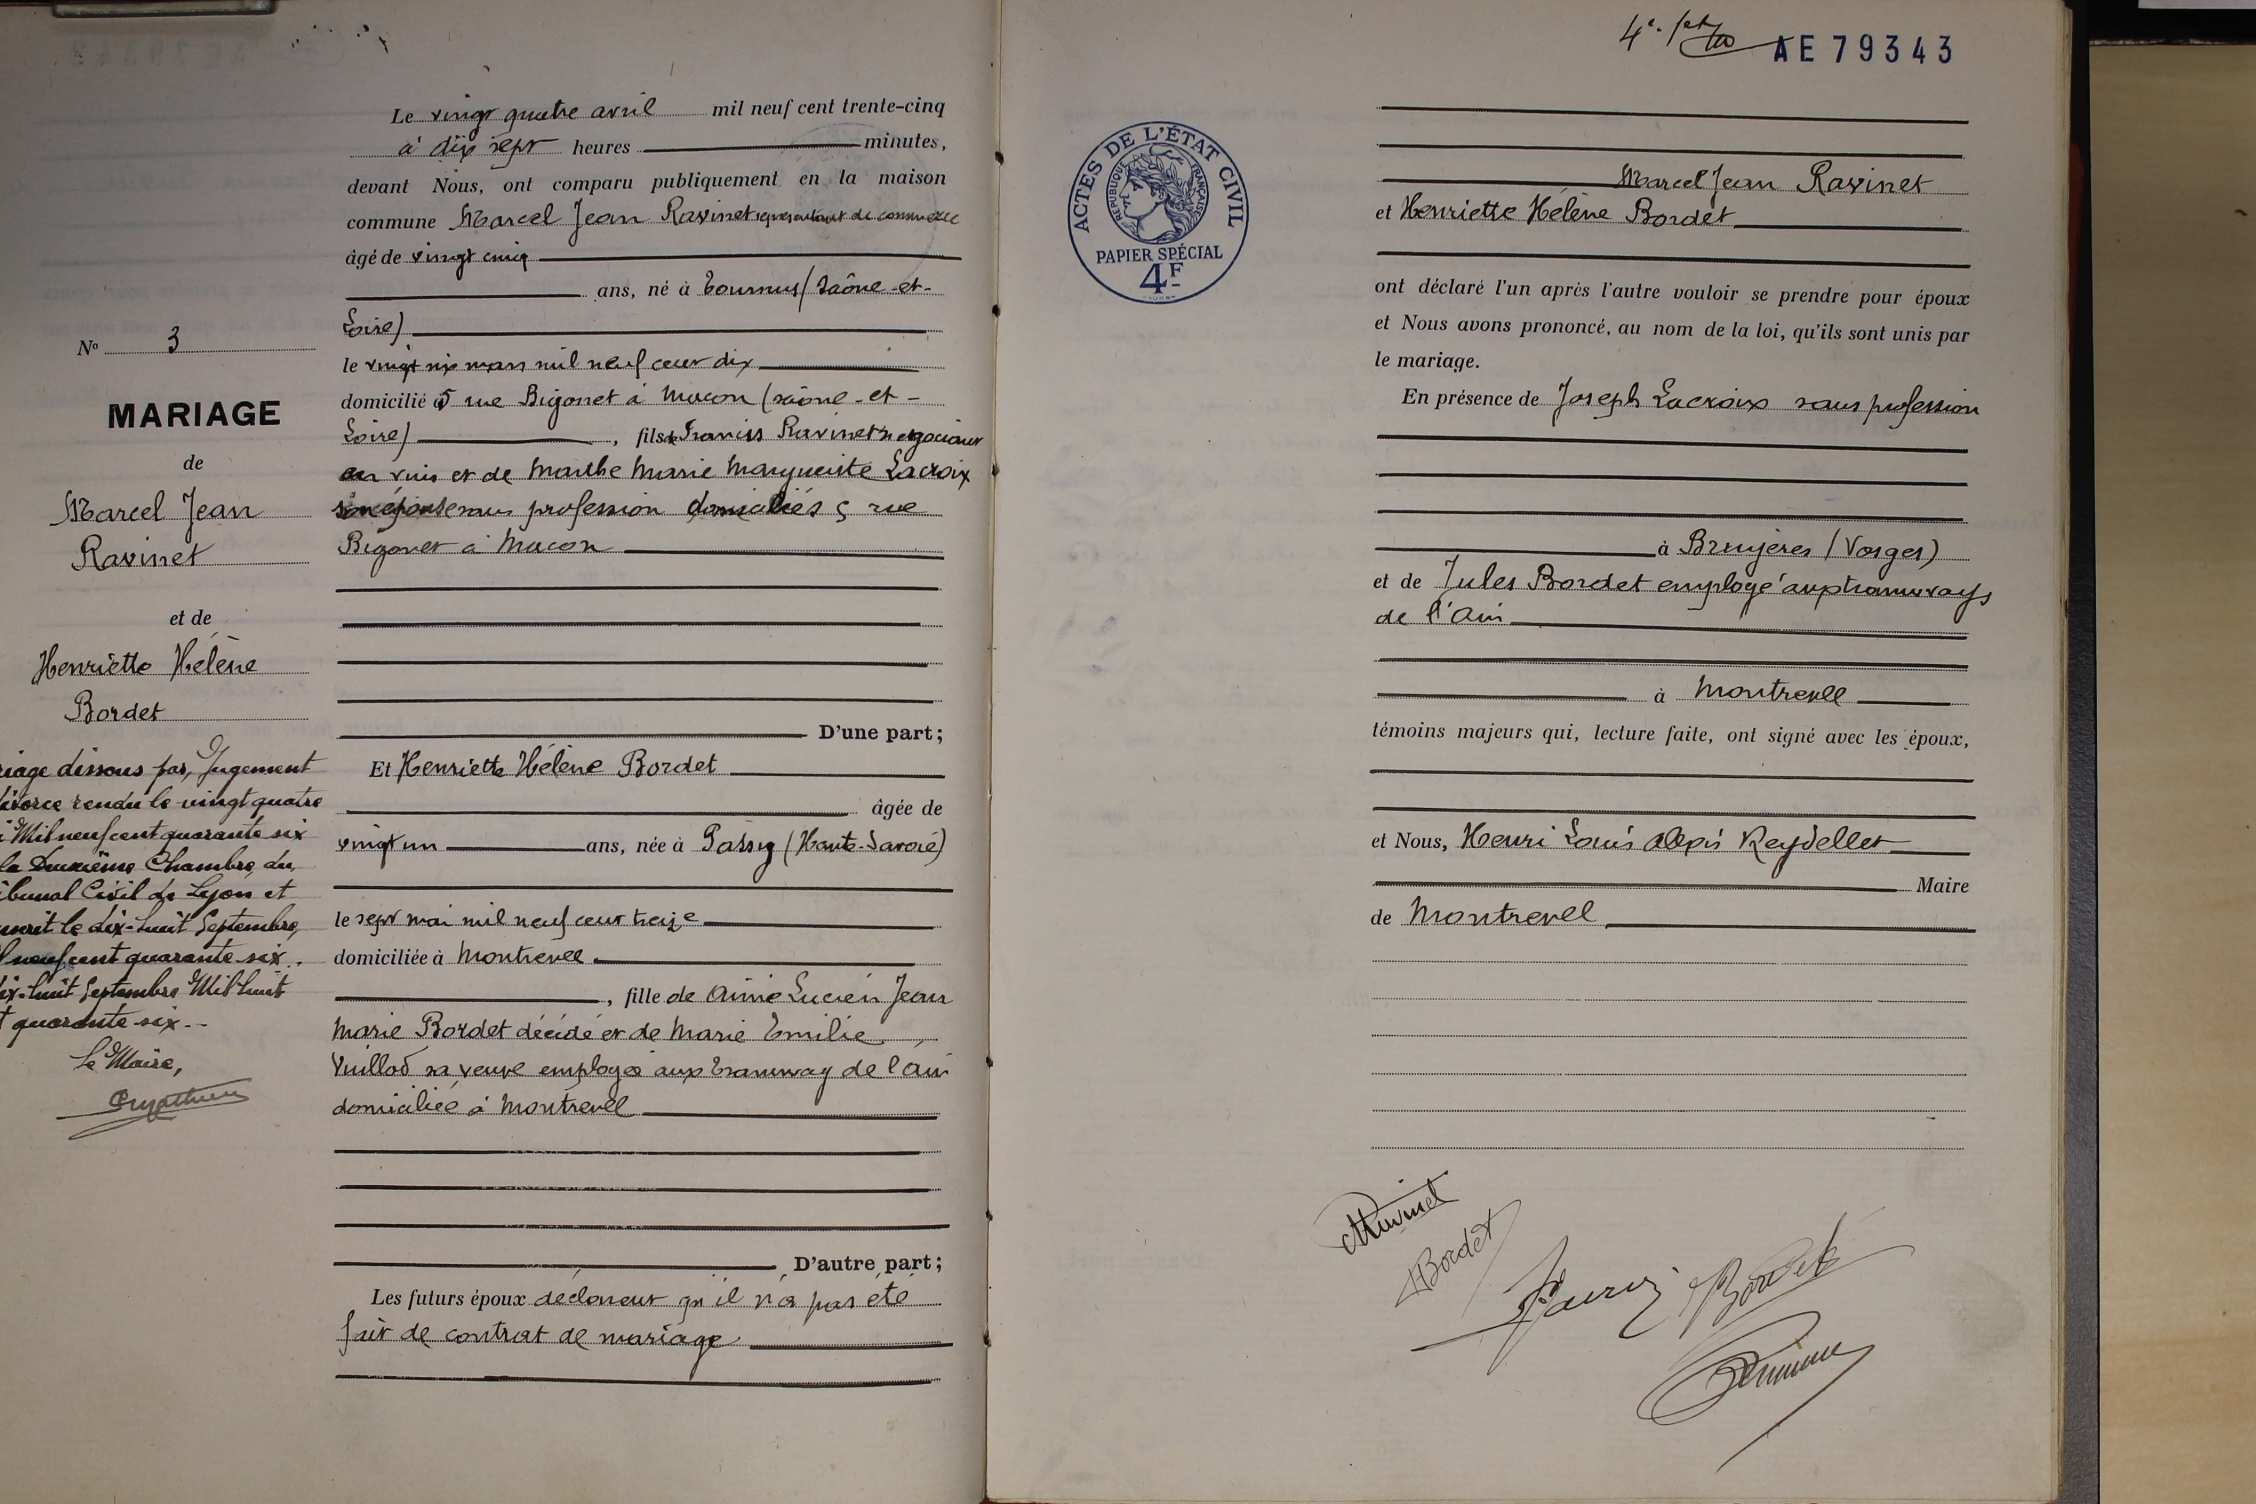 Le vingt quatre avril mil neuf cent trente-cinq
à dix sept heures minutes,
devant Nous, ont comparu publiquement en la maison
commune Marcel Jean Ravinet représentant de commerce
âgé de vingt cinq
ans, né à Tournus (Saône-et-
Loire)
le vingt six mars mil neuf cent dix
domicilié à 5 rue Bigonnet à Macon (Saône-et-
Loire) , fils de Francis Ravinet négociant
en vins et de Marthe Marie Marguerite Lacroix
son épouse sans profession domiciliés 5 rue
Bigonet à Macon
D'une part;
Et Henriette Hélène Bordet
âgée de
vingt un ans, née à Passy (Haute-Savoie)
le sept mai mil neuf cent treize
domiciliée à Montrevel
, fille de Aimé Lucien Jean
Marie Bordet décédé et de Marie Emilie
Vuillod sa veuve employée aux Tramway de l'Ain
domiciliée à Montrevel
D'autre part;
Les futurs époux déclarent qu'il n'a pas été
fait de contrat de mariage
No 3
MARIAGE
de
Marcel Jean
Ravinet
et de
Henriette Hélène
Bordet
riage dissous par Jugement
divorce rendu le vingt quatre
Mil neuf cent quarante six
la Deuxième Chambre du
ibunal Civil de Lyon et
le dix-huit Septembre
neuf cent quarante-six.
dix-huit Septembre Mil huit
quarante-six.-
Le Maire,
4e
AE 79343
ACTES DE L'ÉTAT CIVIL
RÉPUBLIQUE FRANÇAISE
PAPIER SPÉCIAL
4F
Marcel Jean Ravinet
et Henriette Hélène Bordet
ont déclaré l'un après l'autre vouloir se prendre pour époux
et Nous avons prononcé, au nom de la loi, qu'ils sont unis par
le mariage.
En présence de Joseph Lacroix sans profession
à Bruyères (Vosges)
et de Jules Bordet employé aux tramways
de l'Ain
à Montrevel
témoins majeurs qui, lecture faite, ont signé avec les époux,
et Nous, Henri Louis Alexis Reydellet
Maire
de Montrevel
MRavinet
HBordet
Bordet